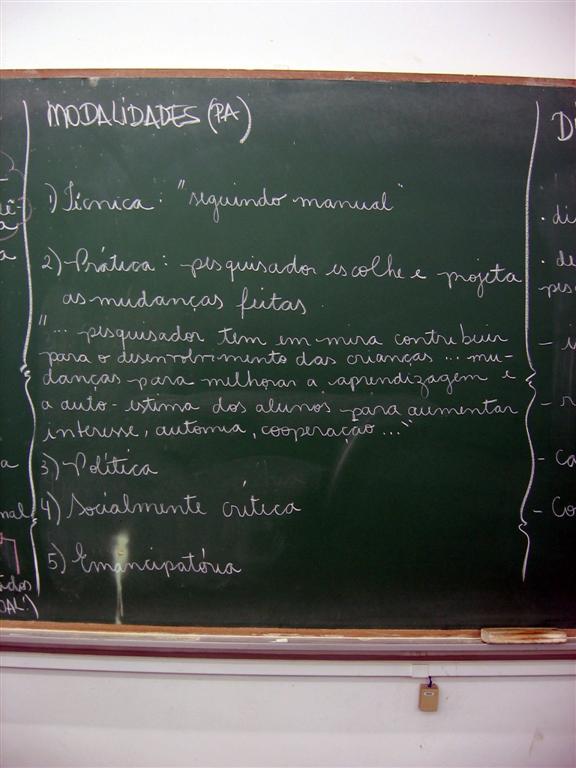 MODALIDADES (PA)
1) Técnica: "seguindo manual"
2) Prática: pesquisador escolhe e projeta
as mudanças feitas.
"... pesquisador tem em mira contribuir
para o desenvolvimento das crianças ... mu-
danças para melhorar a aprendizagem e
a auto-estima dos alunos para aumentar
interesse, automia, cooperação ..."
3) Política
4) Socialmente crítica
5) Emancipatória